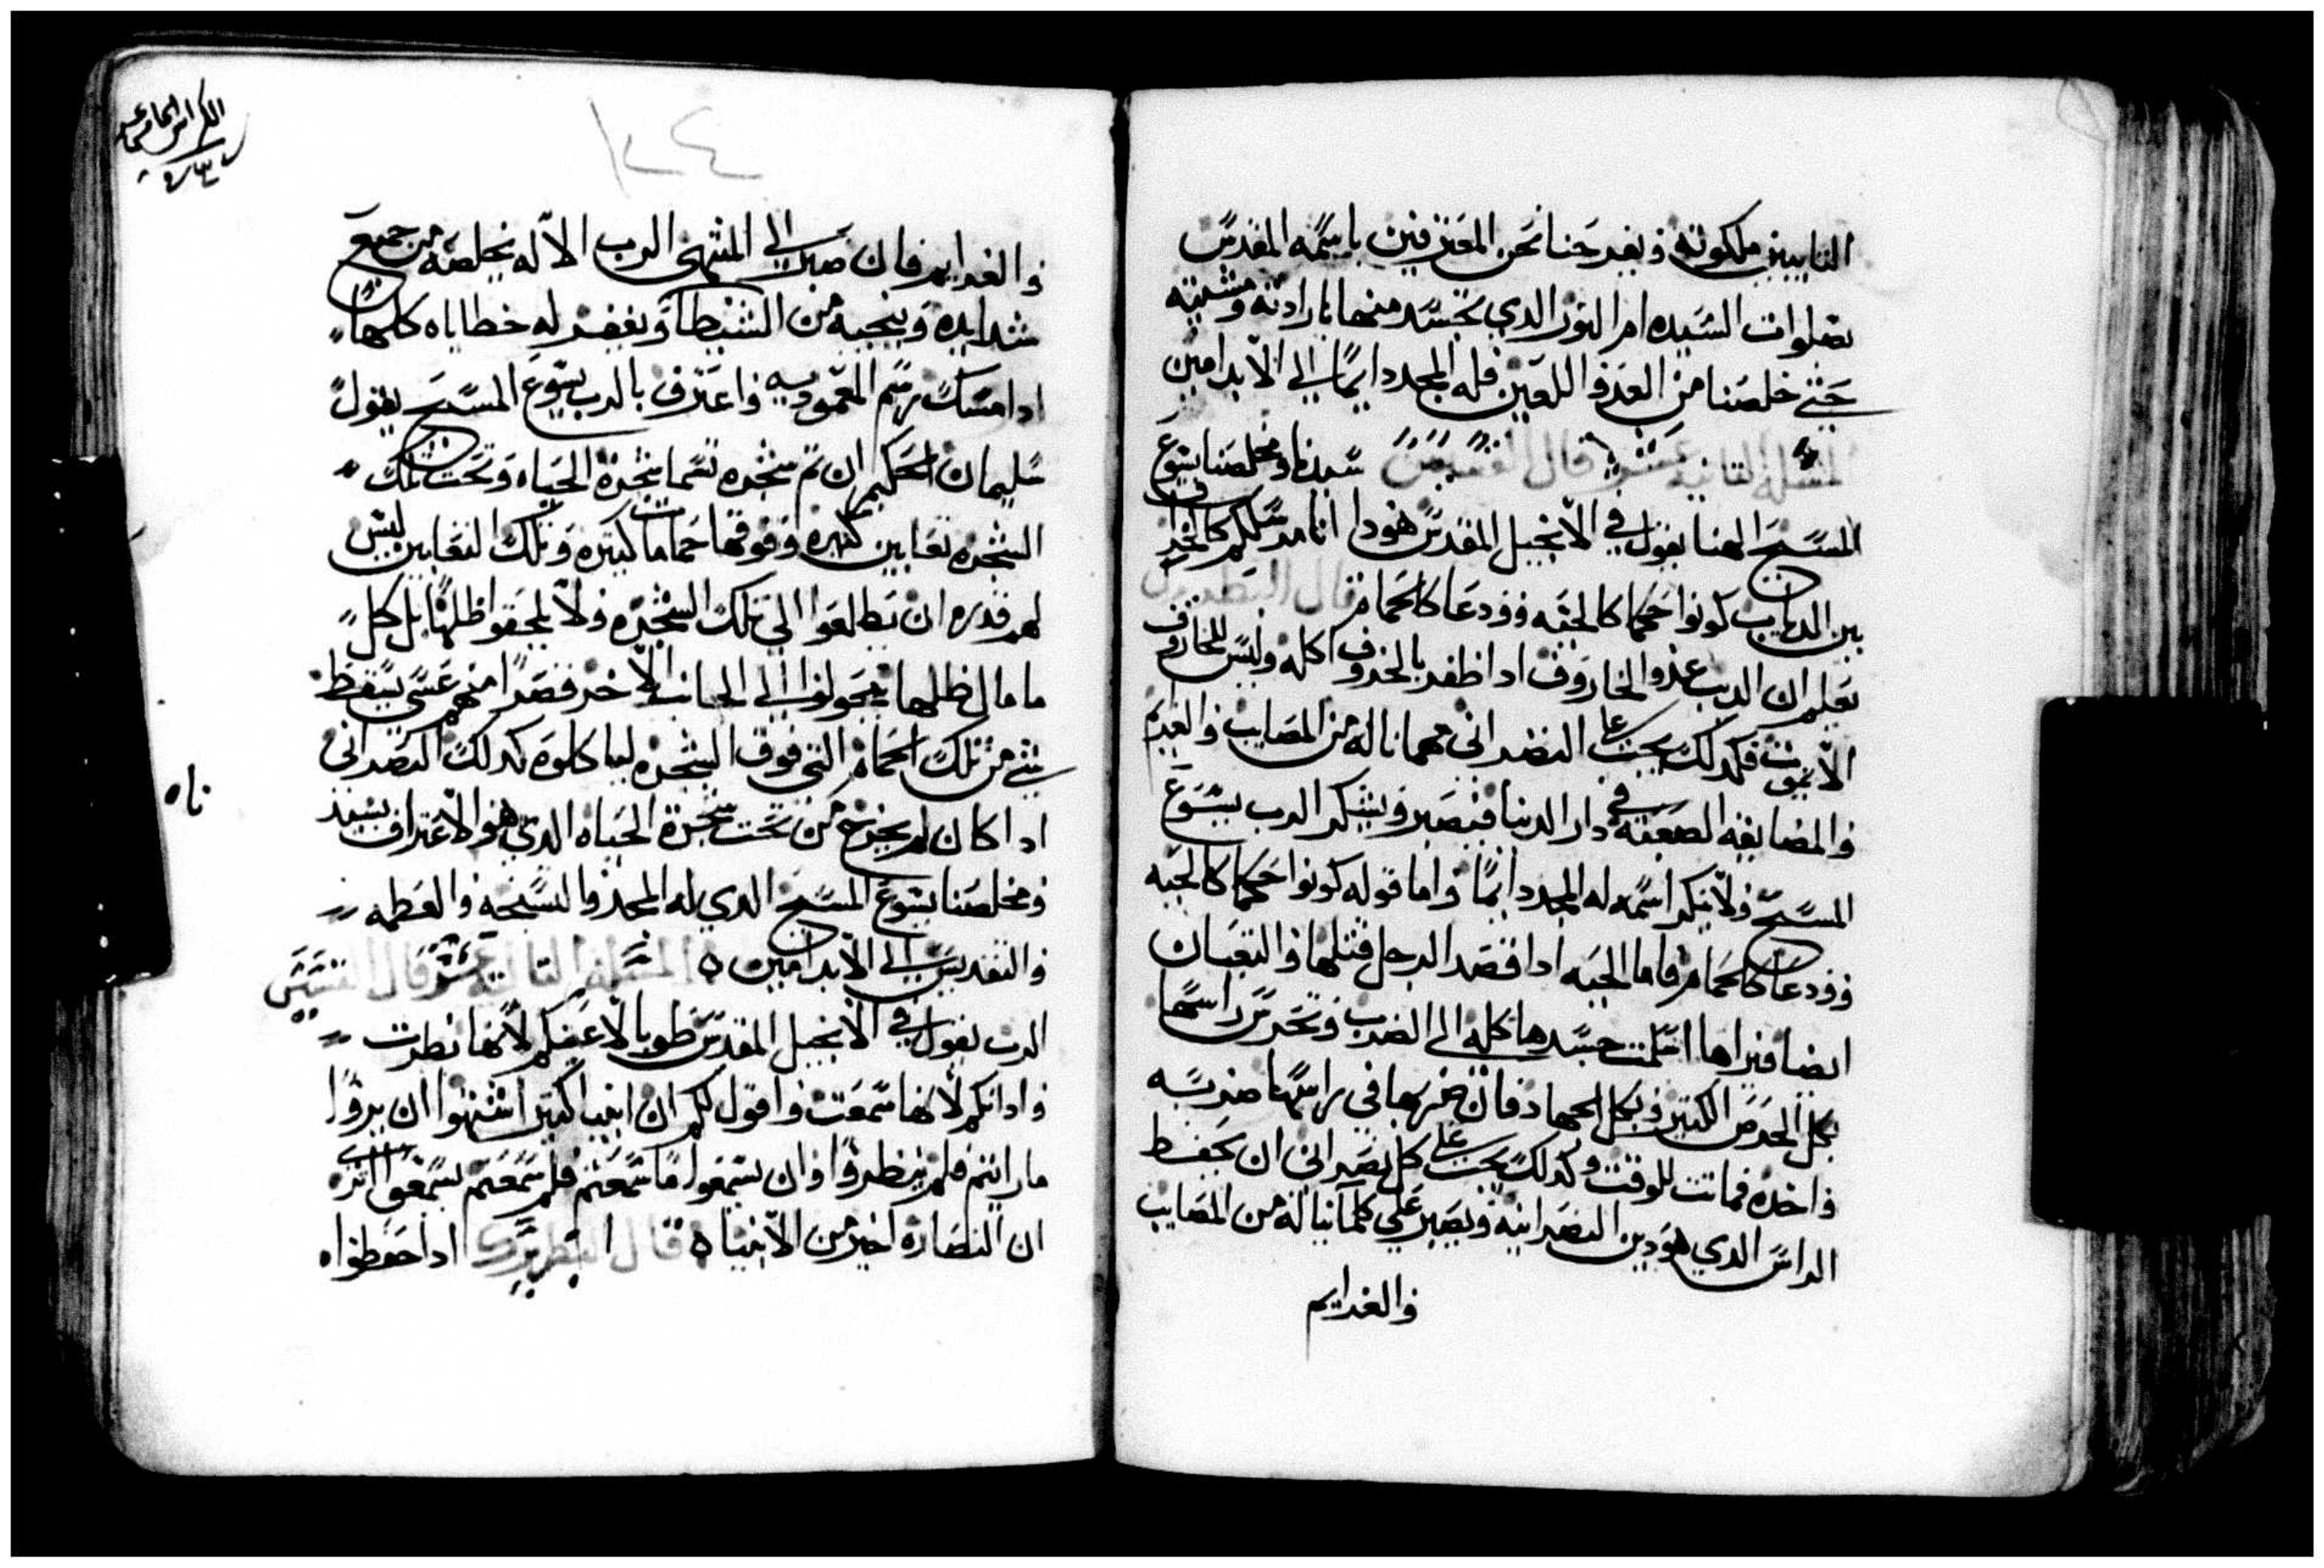 التايبين ملكوته ويفرحنا نحن المعترفين باسمه المقدس
بصلوات السيده ام النور الدي تجسد منها بارادته ومشيته
حتي خلصنا من العدو اللعين فله المجد دايمًا الي الابد امين
المسله التانيه عشر قال القسيس سيدنا ومخلصنا يسوع
المسيح الهنا يقول في الانجيل المقدس هودا انا مرسلكم كالخراف
بين الدياب كونوا حكما كالحيه وودعا كالحمام قال البطريرك
نعلم ان الديب عدو الخاروف ادا ظفر بالخروف اكله وليس للخاروف
الا يموت فكدلك يجب علي النصراني مهما ناله من المصايب والغرايم
والمضايقه الصعبه في دار الدنيا فيصبر ويشكر الرب يسوع
المسيح ولا ينكر اسمه له المجد دايمًا واما قوله كونوا حكما كالحيه
وودعا كالحمام فاما الحيه ادا قصد الرجل قتلها والتعبان
ايضا فتراها اسلمت جسدها كله الي الضرب وتحرس راسها
بكل الحرص الكتير وبكل الجهاد فان ضربها في راسها ضربه
واحده فماتت للوقت وكدلك يجب علي كل نصراني ان يحفظ
الراس الدي هو دين النصرانيه ويصبر علي كلما يناله من المصايب
والغرايم
الكراس الحادي عشر
١٢٤
والغرايم فان صبر الي المنتهي الرب الاله يخلصه من جميع
شدايده وينجيه من الشيطان ويغفر له خطاياه كلها
ادا مسك برسم المعموديه واعترف بالرب يسوع المسيح يقول
سليمان الحكيم ان تم شجره تسما شجرة الحياه وتحت تلك
الشجره تعابين كتيره وفوقها حمامات كتيره وتلك التعابين ليس
لهم قدره ان يطلعوا الي تلك الشجره ولا يلحقوا ظلها بل كل
ما مال ظلها يتحولوا الي الجانب الاخر قصدًا منهم عسي يسقط
شي من تلك الحمام التي فوق الشجره ليأكلوه كدلك النصراني
ادا كان لم يخرج من تحت شجرة الحياه الدي هو الاعتراف بسيد
ناه
ومخلصنا يسوع المسيح الدي له المجد والتسبحه والعظمه
والتقديس الي الابد امين ه المسله التالته عشر قال القسيس
الرب يقول في الانجيل المقدس طوبا لاعينكم لانها نظرت
وادانكم لانها سمعت واقول لكم ان انبيا كتير اشتهوا ان يروا
ما رايتم فلم ينظروا وان يسمعوا ما سمعتم فلم يسمعوا اتره
ان النصاره اخير من الانبياه قال البطريرك ادا حفظواه